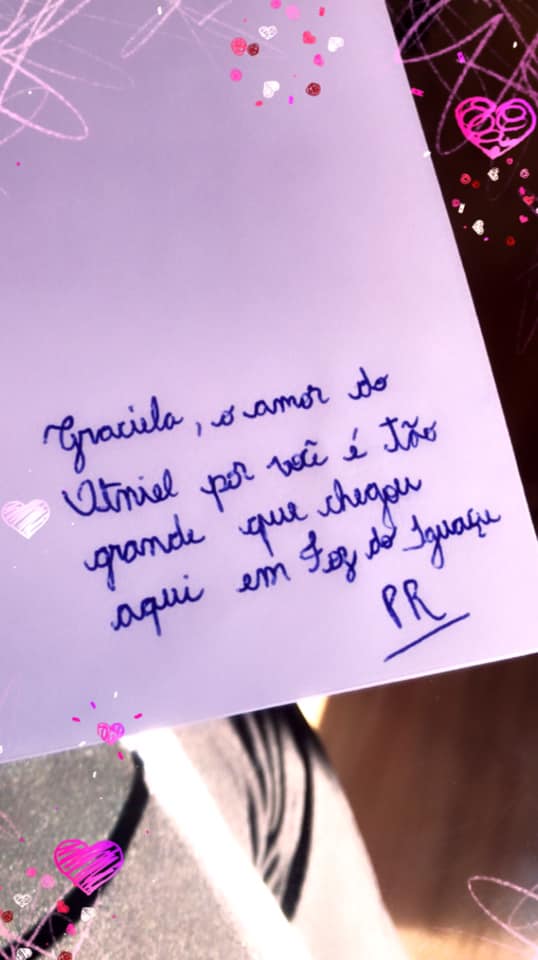 Graciela, o amor do
Otniel por você é tão
grande que chegou
aqui em Foz do Iguaçu
PR